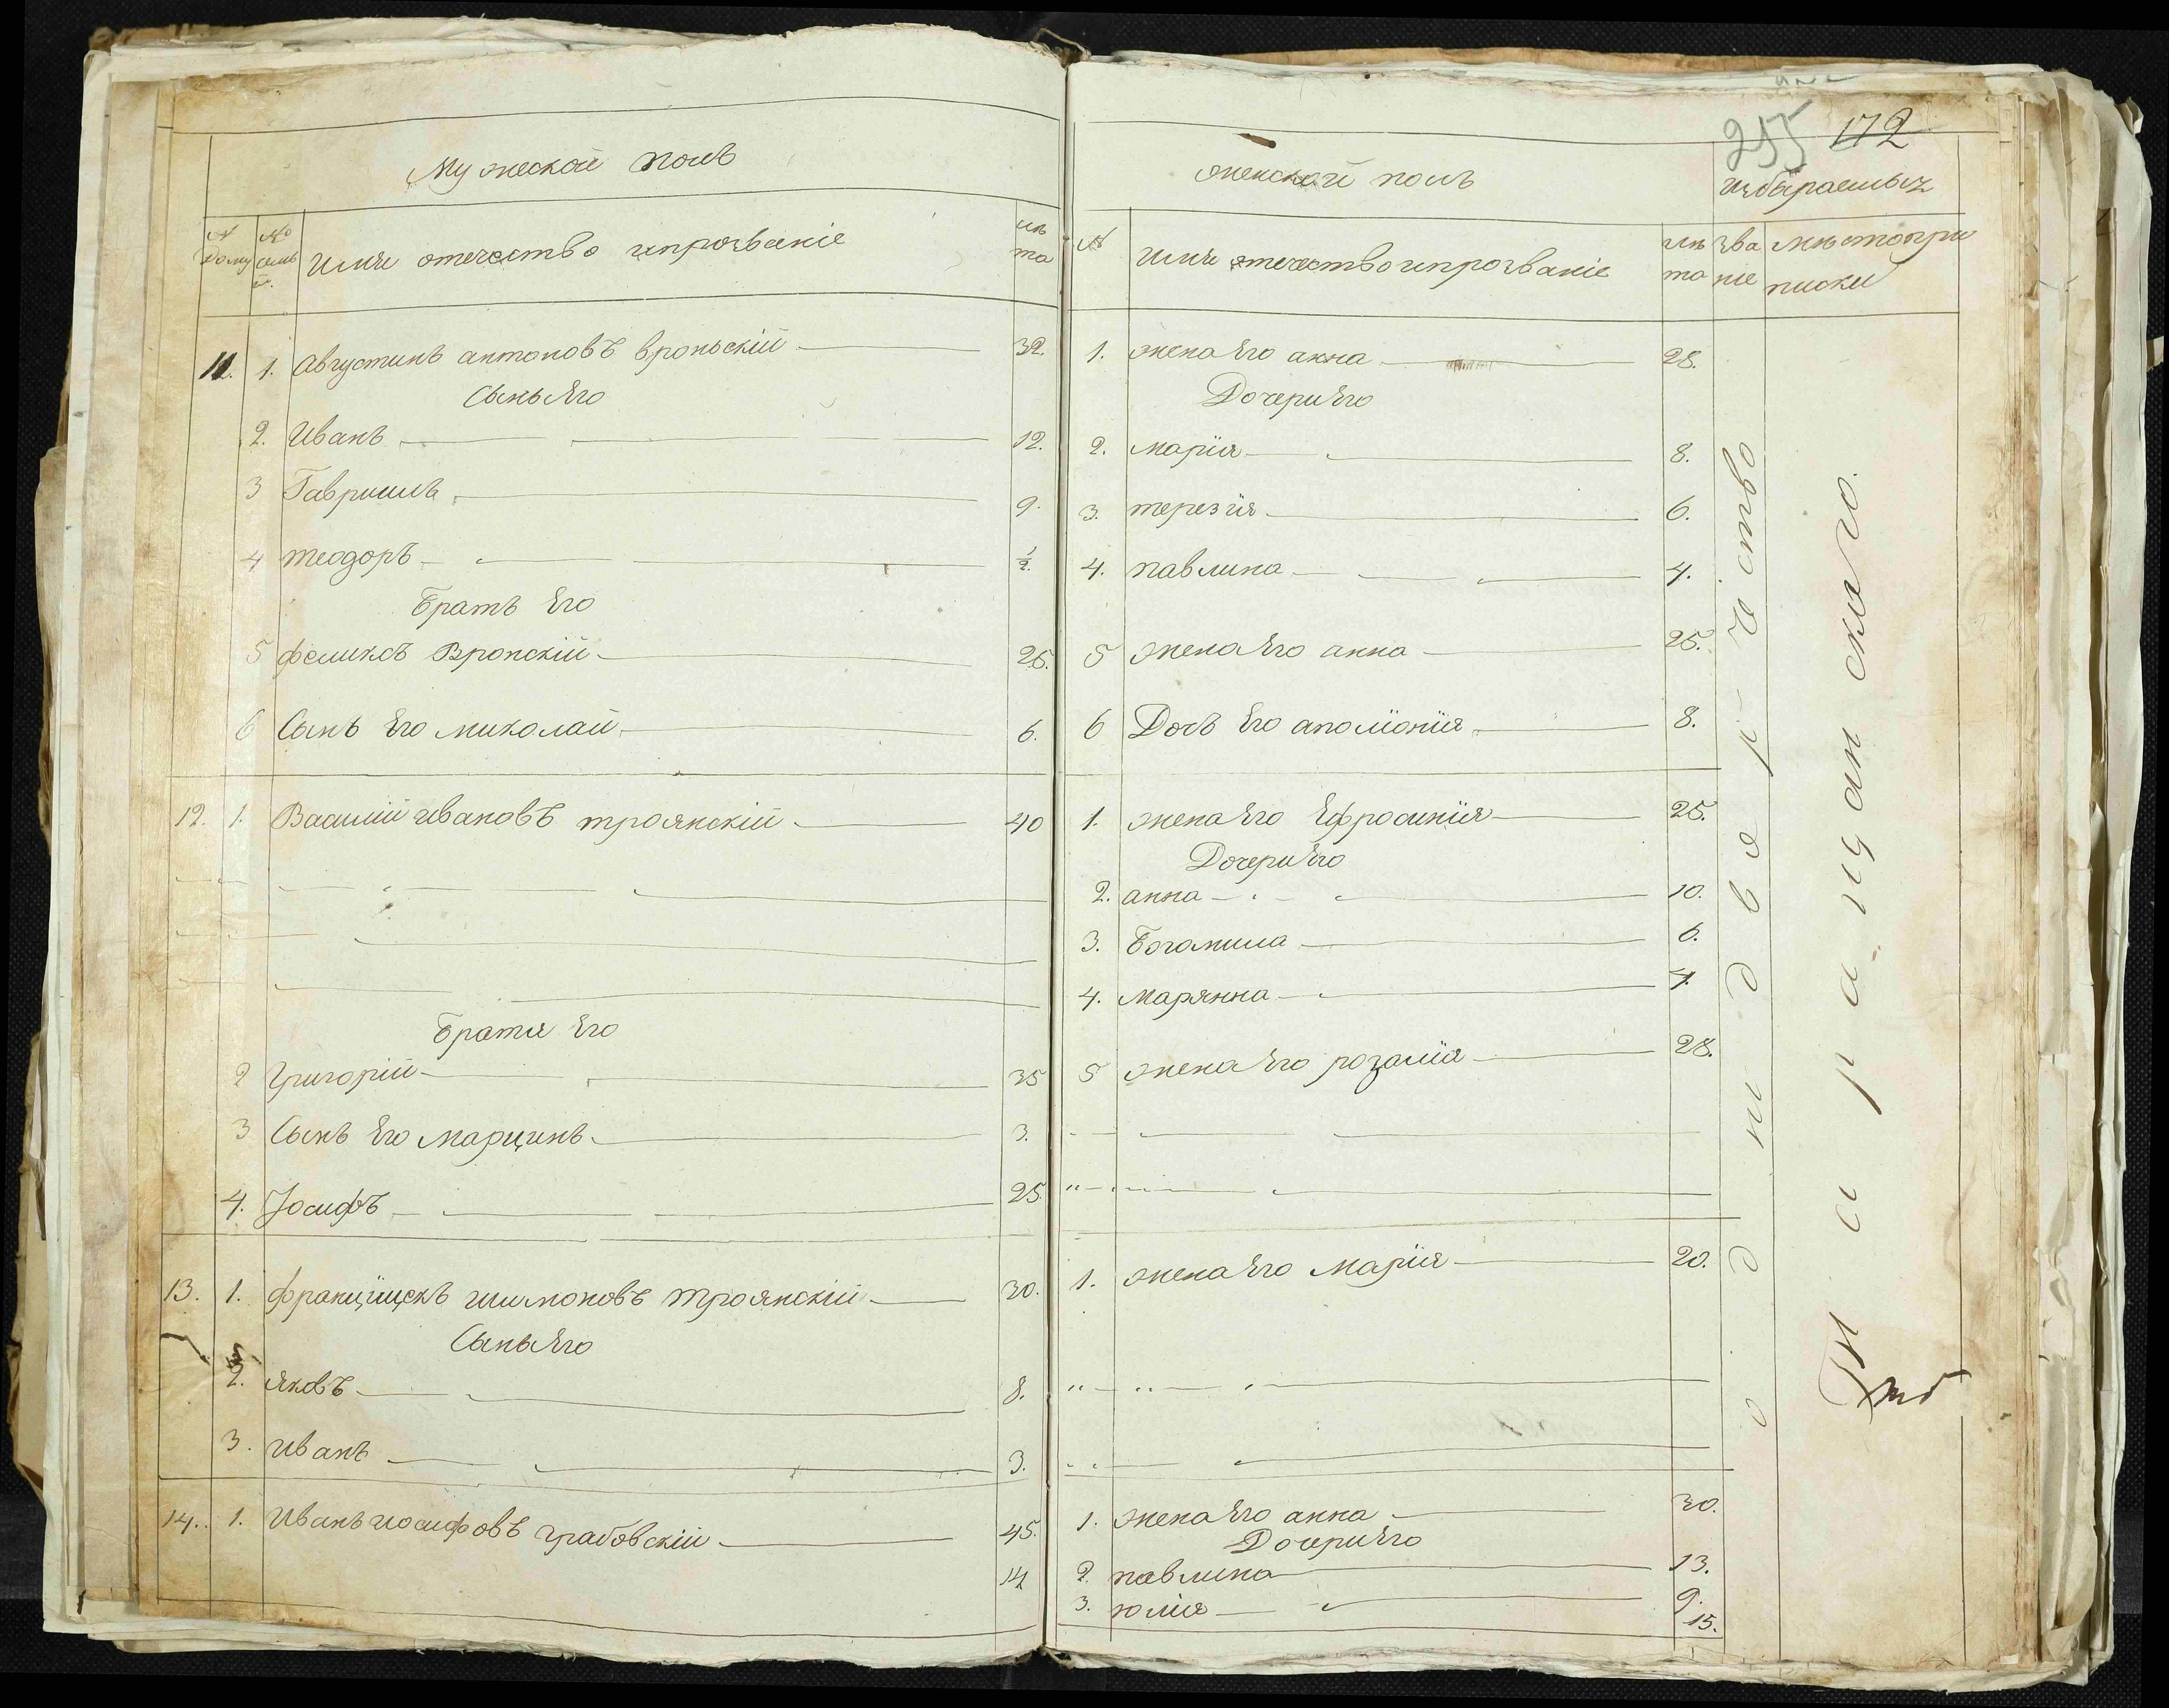 255 172
Мужеской полъ
№ Дому
№ семьи.
Имя отечество ипрозваніе
лѣта
11. 1. Августинъ антоновъ вронскій 32.
Сынъ Его
2. Иванъ 12.
3 Гавриилъ 9.
4 теодоръ ½.
Братъ Его
5 феликсъ Вронскій 25.
6 Сынъ Его миколай 6.
12. 1. Василій ивановъ троянскій 40
Братя Его
2 Григорій 35
3 Сынъ Его марцинъ 3.
4. Іосифъ 25.
13. 1. францишекъ шимоновъ троянскій 30.
Сынъ Его
2. яковъ 8.
3. иванъ 3.
14. 1. Иванъ иосифовъ грабовскій 45.
14
женской полъ
избираемыхъ
№
Имя отечество ипрозваніе
лѣта
зва ніе
мѣсто при писки
1. жена Его анна 28.
Дочери Его
2. марія 8.
3. терезія 6.
4. павлина 4.
5 жена Его анна 25.
6 Дочъ Его аполіонія 8.
1. жена Его Ефросинія 25.
Дочери Его
2. анна 10.
3. Богамила 6.
4. марянна 4.
5 жена Его розалія 28.
1. жена Его марія 20.
1. жена Его анна 30.
Дочери Его
2. павлина 13.
3. юлія 9.
15.